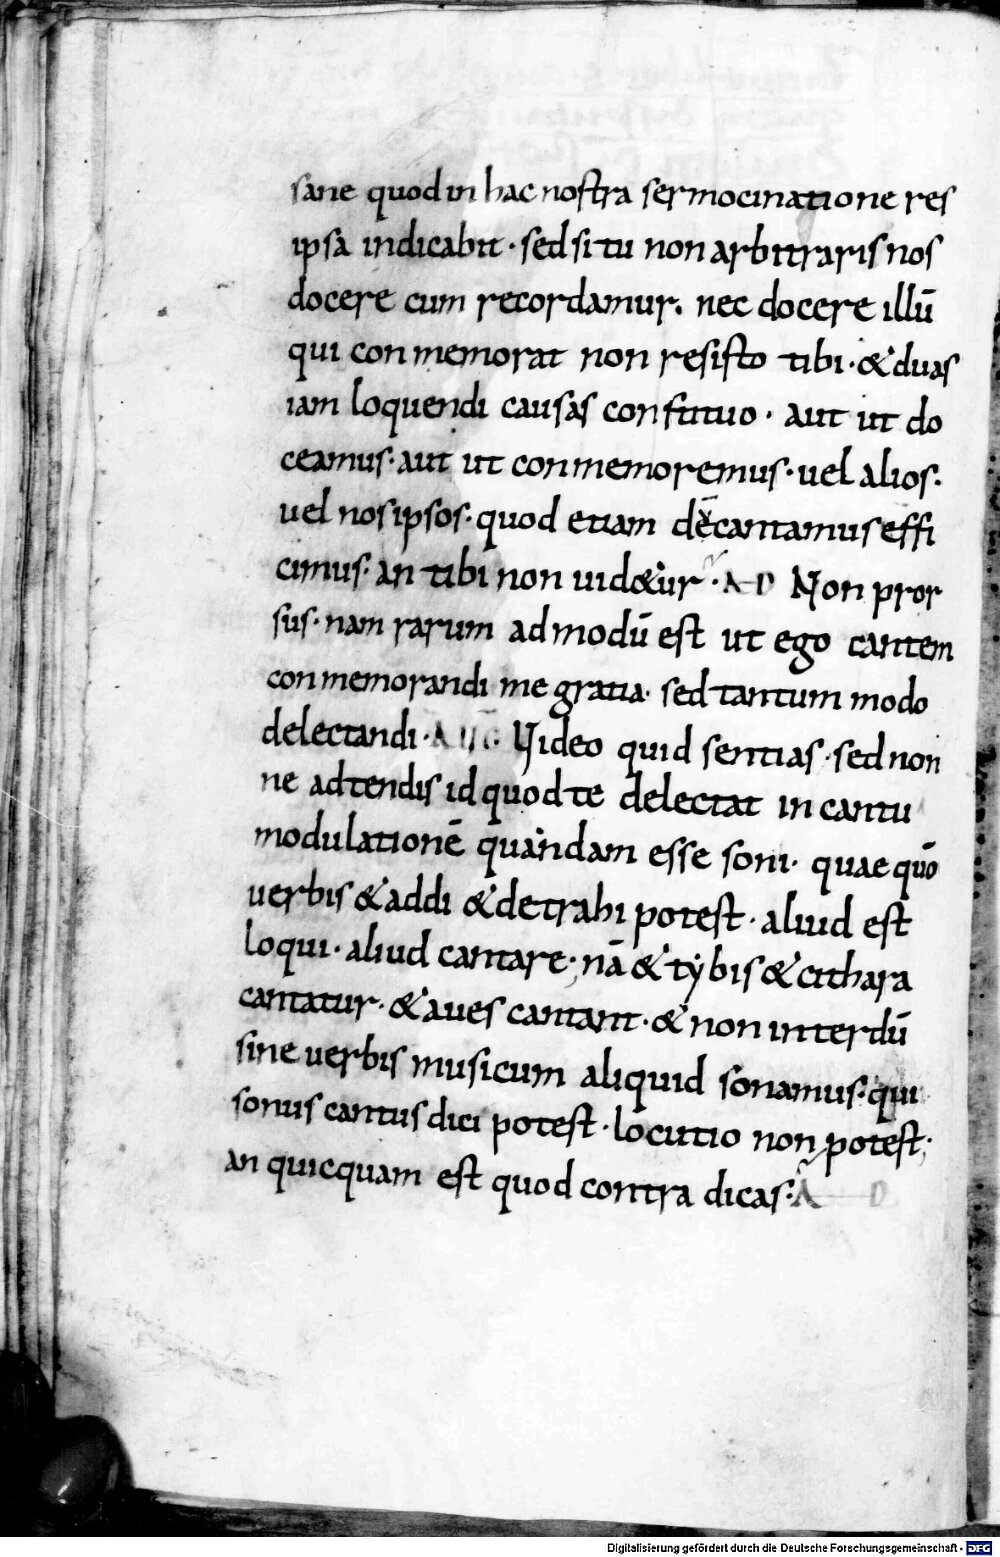 sane quod in hac nostra sermocinatione res
ipsa indicabit · sed si tu non arbitraris nos
docere cum recordamur. nec docere illū
qui conmemorat non resisto tibi · & duas
iam loquendi causas constituo · aut ut do
ceamus · aut ut conmemoremus · uel alios ·
uel nos ipsos · quod etiam decantamus effi
cimus · an tibi non uid&ur · AD Non pror
sus · nam rarum admodū est ut ego cantem
conmemorandi me gratia · sed tantum modo
delectandi · AUG · Video quid sentias · sed non
ne adtendis id quod te delectat in cantu
modulationē quandam esse soni · quae quō
uerbis & addi & detrahi potest · aliud est
loqui · aliud cantare · nā & tybis & cithara
cantatur · & aues cantant · & non interdū
sine uerbis musicum aliquid sonamus · qui
sonus cantus dici potest · locutio non potest;
an quicquam est quod contra dicas · A D
Digitalisierung gefördert durch die Deutsche Forschungsgemeinschaft - DFG